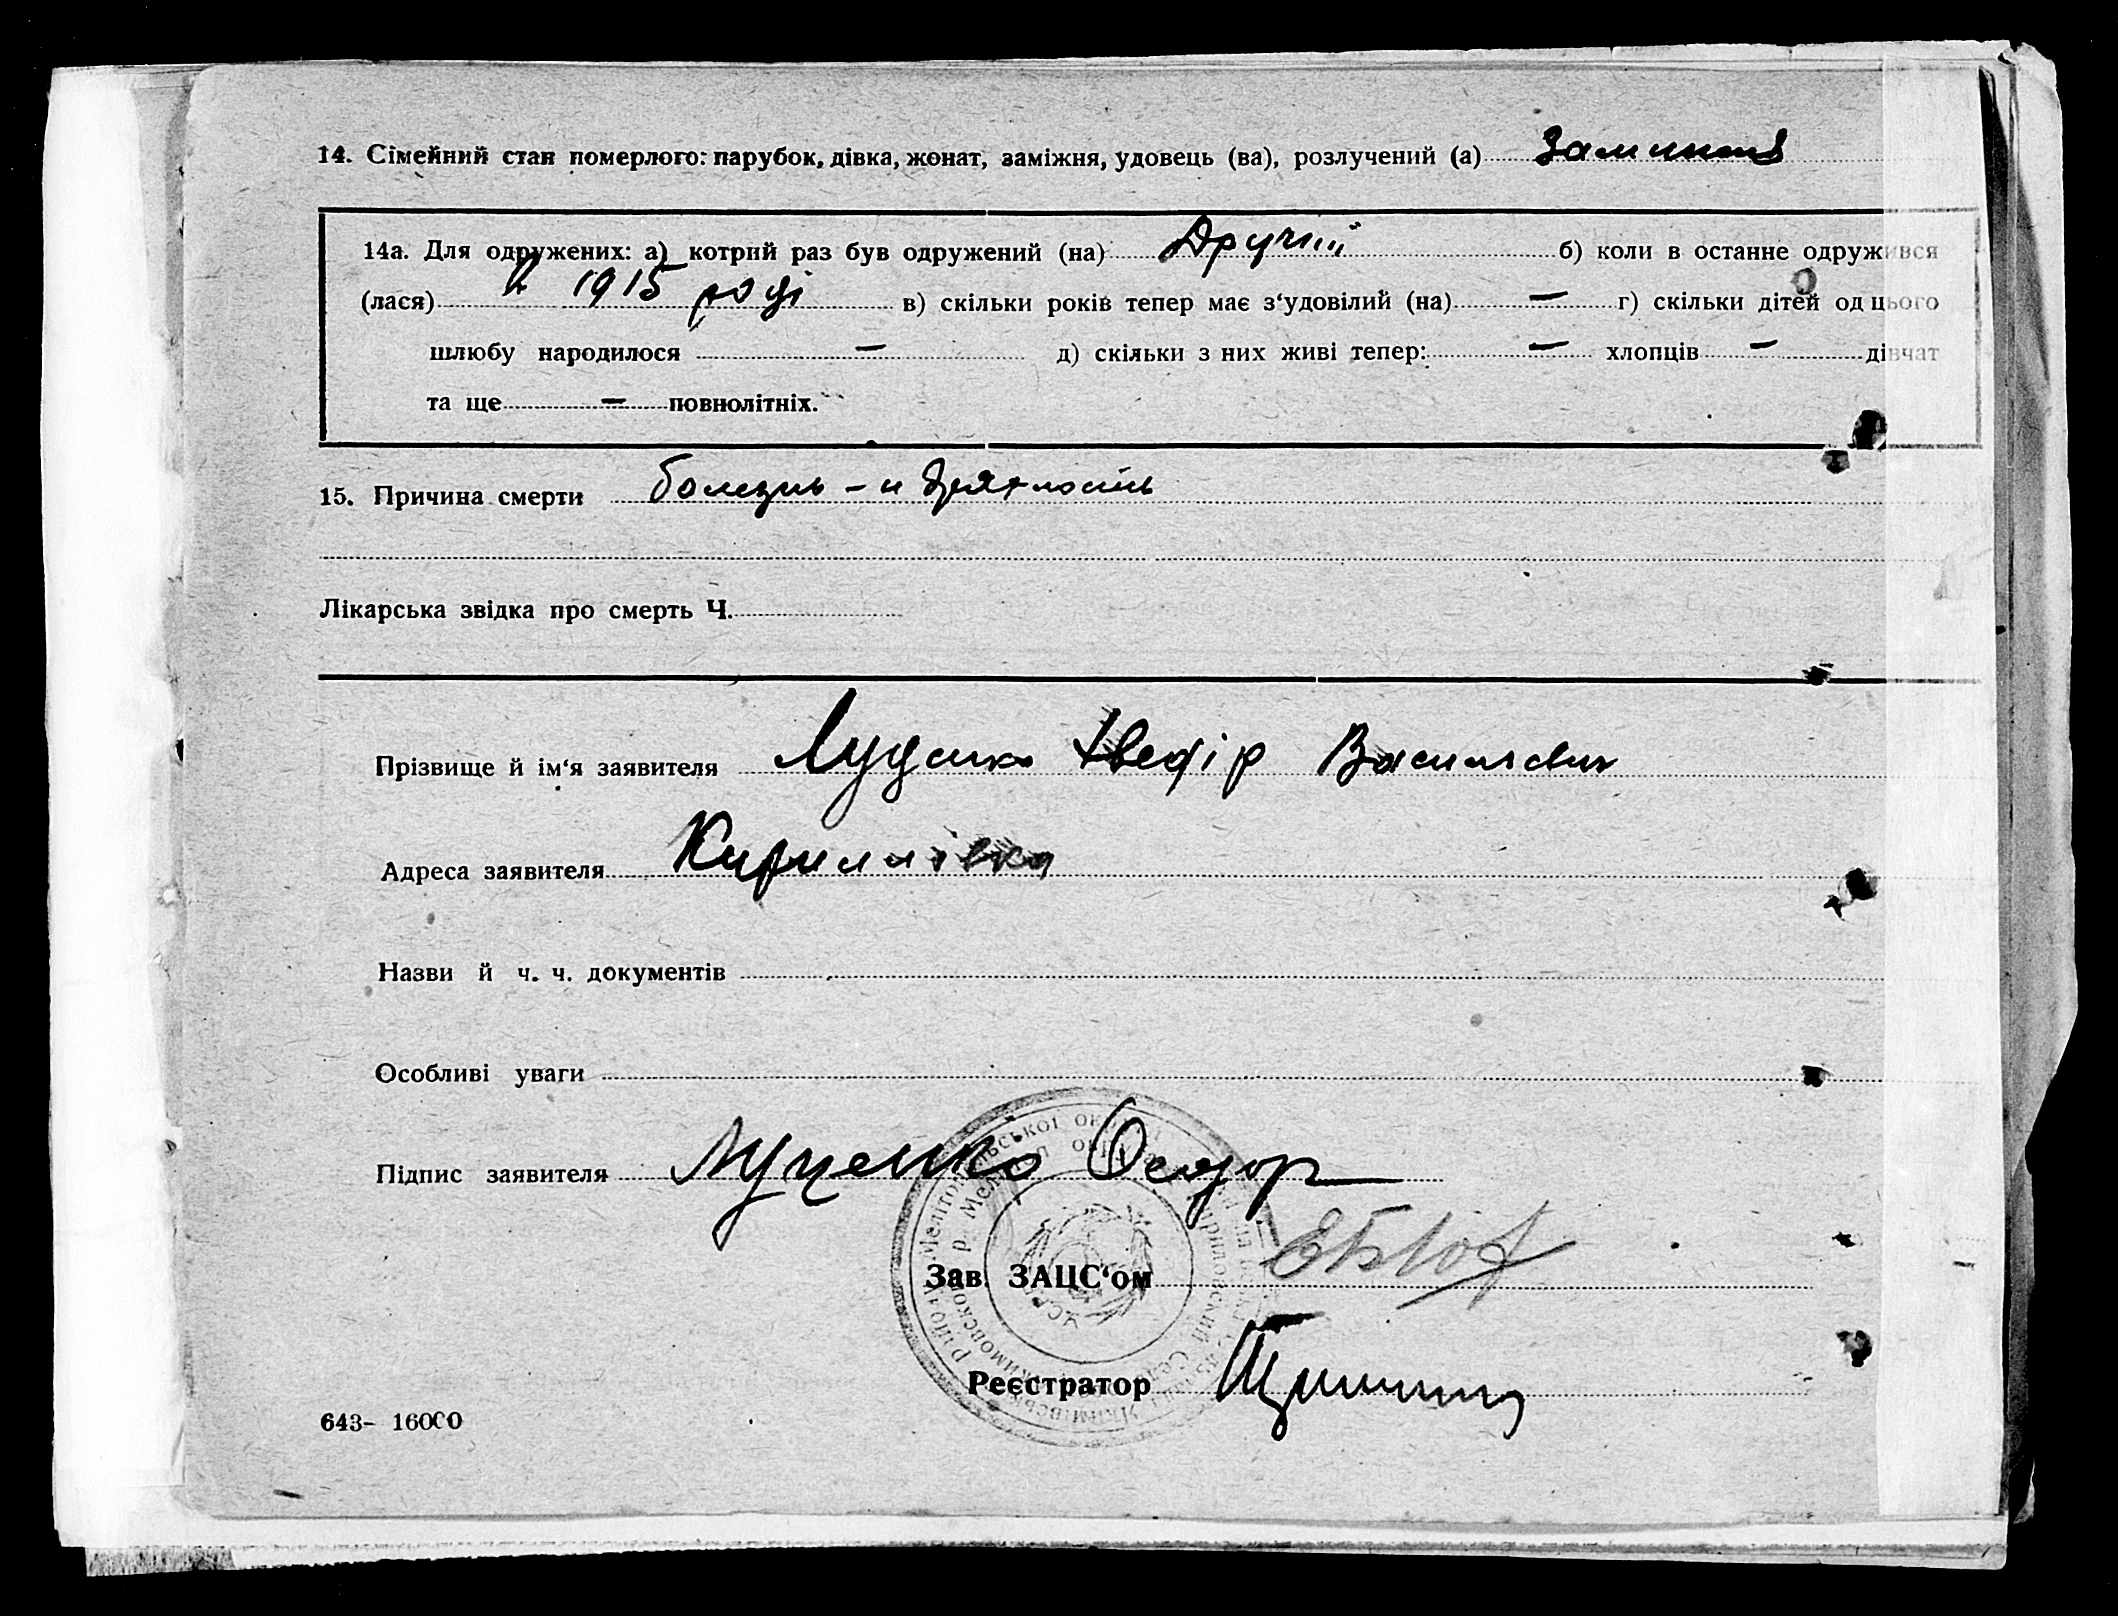 14. Сімейний стан померлого: парубок, дівка, жонат, заміжня, удовець (ва), розлучений (а)
14а. Для одружених: а) котрий раз був одружений (на) Другий б) коли в останне одружився
(лася) 1915 році в) скільки років тепер має з‘удовілий (на) — г) скільки дітей од цього
шлюбу народилося — д) скільки з них живі тепер: — хлопців — дівчат
та ще — повнолітніх.
15. Причина смерти болезнь – и дряхлость
Лікарська звідка про смерть Ч.
Прізвище й ім‘я заявителя Луценко Васильевич
Адреса заявителя Кириллівка
Назви й ч. ч. документів
Особливі уваги
Підпис заявителя Луценко
Зав. ЗАЦС‘ом
Реєстратор
643- 16000